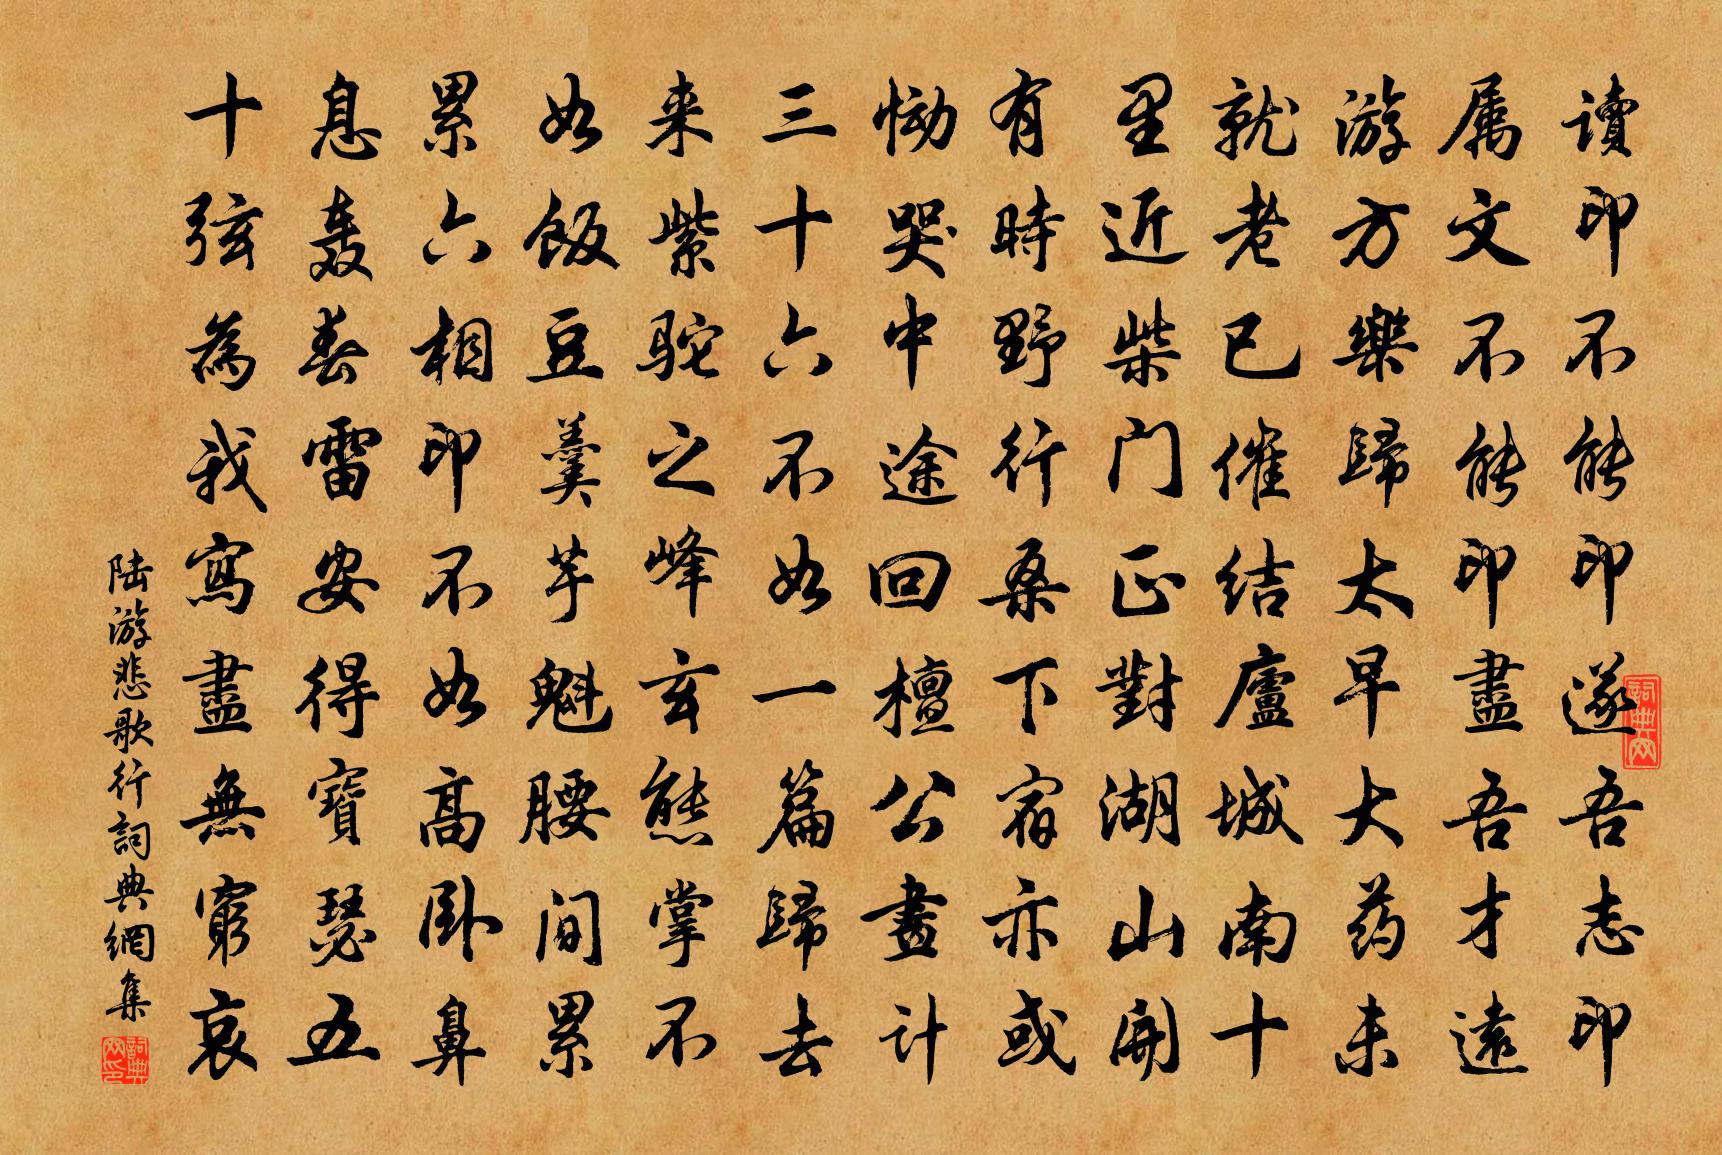 讀印不能印遂吾志印
属文不能印盡吾才遠
游方樂歸太早大药未
就老已催结廬城南十
里近柴门正對湖山開
有時野行桑下宿亦或
恸哭中途回檀公畫计
三十六不如一篇歸去
来紫驼之峰玄熊掌不
如飯豆羹芋魁腰间累
累六相印不如高卧鼻
息轰春雷安得寶瑟五
十弦為我寫盡無窮哀
陆游悲歌行詞典網集
詞典网
詞典网印